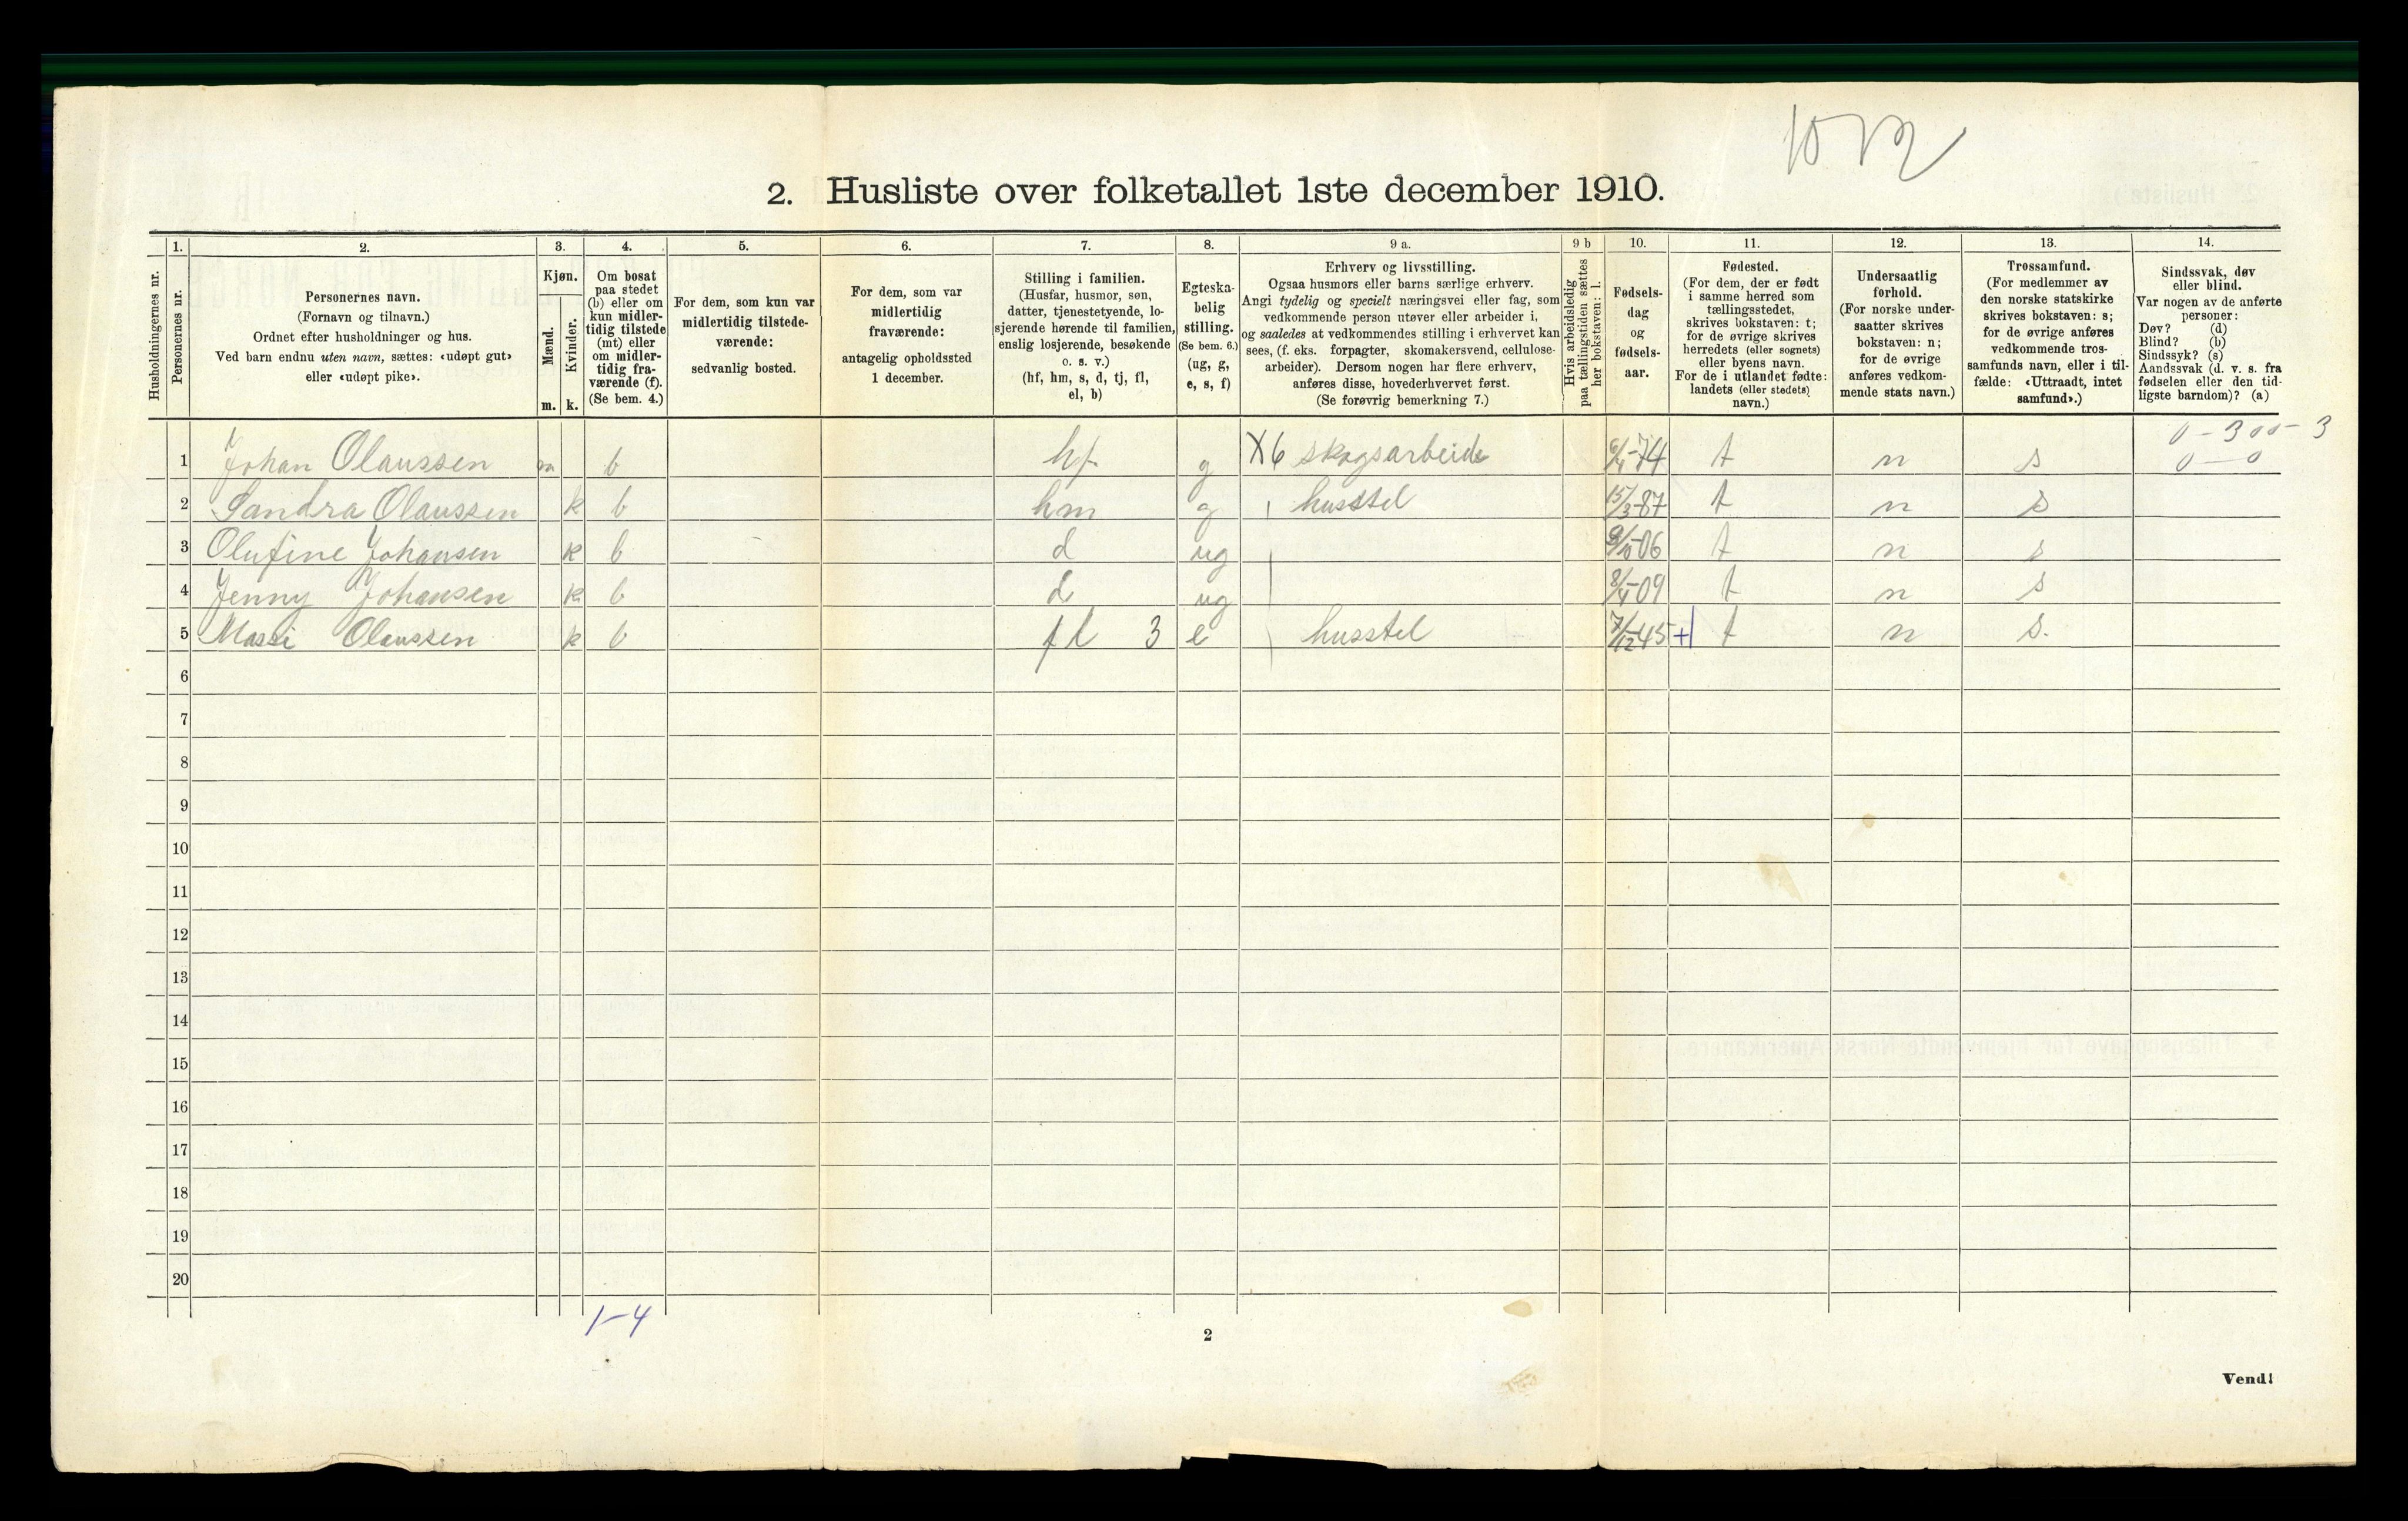 2. Husliste over folketallet 1ste december 1910.
Husholdningernes nr.
1.
Personernes nr.
2.
Personernes navn.
(Fornavn og tilnavn.)
Ordnet efter husholdninger og hus.
Ved barn endnu uten navn, sættes: «udøpt gut»
eller «udøpt pike».
3.
Kjøn.
Mænd.
Kvinder.
m. k.
4.
Om bosat
paa stedet
(b) eller om
kun midler-
tidig tilstede
(mt) eller
om midler-
tidig fra-
værende (f).
(Se bem. 4.)
5.
For dem, som kun var
midlertidig tilstede-
værende:
sedvanlig bosted.
6.
For dem, som var
midlertidig
fraværende:
antagelig opholdssted
1 december.
7.
Stilling i familien.
(Husfar, husmor, søn,
datter, tjenestetyende, lo-
sjerende hørende til familien,
enslig losjerende, besøkende
o. s. v.)
(hf, hm, s, d, tj, fl,
el, b)
8.
Egteska-
belig
stilling.
(Se bem. 6.)
(ug, g,
e, s, f)
9 a.
Erhverv og livsstilling.
Ogsaa husmors eller barns særlige erhverv.
Angi tydelig og specielt næringsvei eller fag, som
vedkommende person utøver eller arbeider i,
og saaledes at vedkommendes stilling i erhvervet kan
sees, (f. eks. forpagter, skomakersvend, cellulose-
arbeider). Dersom nogen har flere erhverv,
anføres disse, hovederhvervet først.
(Se forøvrig bemerkning 7.)
9 b
Hvis arbeidsledig
paa tællingstiden sættes
her bokstaven: l.
10.
Fødsels-
dag
og
fødsels-
aar.
11.
Fødested.
(For dem, der er født
i samme herred som
tællingsstedet,
skrives bokstaven: t;
for de øvrige skrives
herredets (eller sognets)
eller byens navn.
For de i utlandet fødte:
landets (eller stedets)
navn.)
12.
Undersaatlig
forhold.
(For norske under-
saatter skrives
bokstaven: n;
for de øvrige
anføres vedkom-
mende stats navn.)
13.
Trossamfund.
(For medlemmer av
den norske statskirke
skrives bokstaven: s;
for de øvrige anføres
vedkommende tros-
samfunds navn, eller i til-
fælde: «Uttraadt, intet
samfund».)
14.
Sindssvak, døv
eller blind.
Var nogen av de anførte
personer:
Døv? (d)
Blind? (b)
Sindssyk? (s)
Aandssvak (d. v. s. fra
fødselen eller den tid-
ligste barndom)? (a)
1 Johan Olaussen m b hf g X6 skogsarbeide t n s 0-0
2 Sandra Olaussen k b hm g husstel 15/3-87 t n s
3 Olufine Johansen k b d ug t n s
4 Jenny Johansen k b d ug t n s
5 Massi Olaussen k b fl 3 e husstel 7/12-45 + t n s.
6
7
8
9
10
11
12
13
14
15
16
17
18
19
20
1-4
2
Vend!